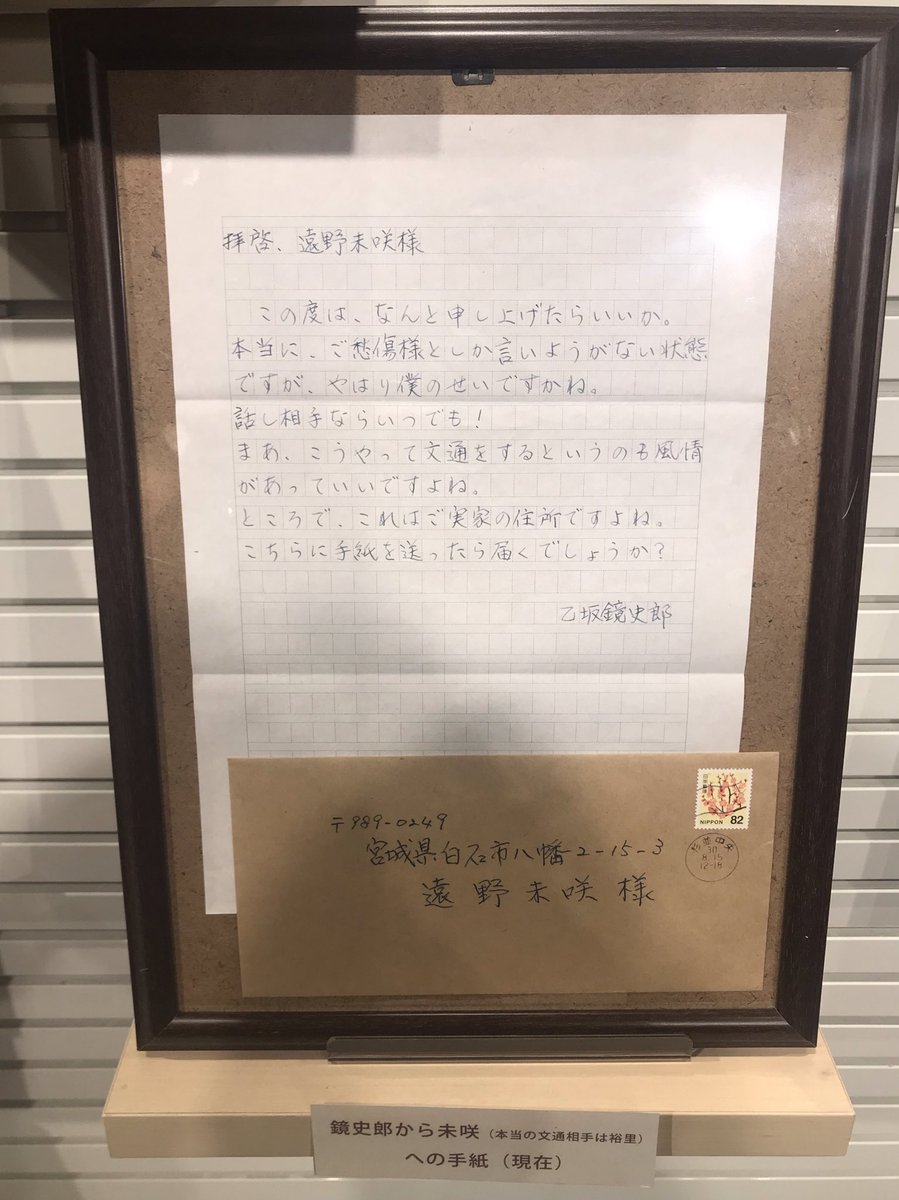 拝啓、遠野未咲様
この度は、なんと申し上げたらいいか。
本当に、ご愁傷様としか言いようがない状態
ですが、やはり僕のせいですかね。
話し相手ならいつでも！
まあ、こうやって文通をするというのも風情
があっていいですよね。
ところで、これはご実家の住所ですよね。
こちらに手紙を送ったら届くでしょうか？
乙坂鏡史郎
日本郵便
NIPPON 82
〒989-0249
杉並中央
30
8.15
12-18
宮城県白石市八幡2-15-3
遠野未咲様
鏡史郎から未咲（本当の文通相手は裕里）
への手紙（現在）